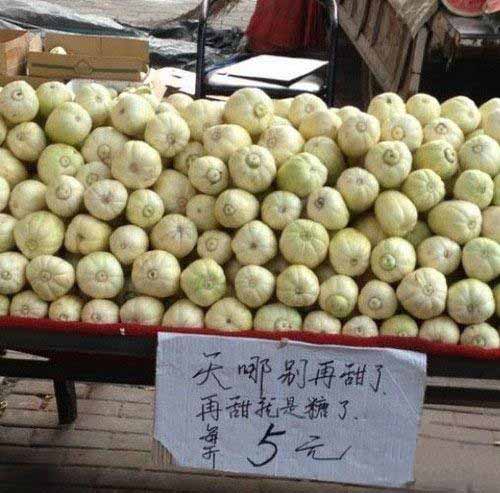 天哪别再甜了.
再甜就是糖了.
每斤5元